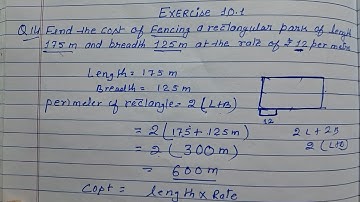 EXERCISE 10.1
Q14 Find the copt of Fencing a rectangular park of length
175 m and breadth 125 m at the rate of ₹ 12 per metre
Length = 175 m
Breadth = 125 m
perimeter of rectangle = 2 (L+B)
12
= 2 (175 + 125 m) 2L + 2B
= 2 (300 m) 2 (L+B)
= 600 m
Copt = length × Rate